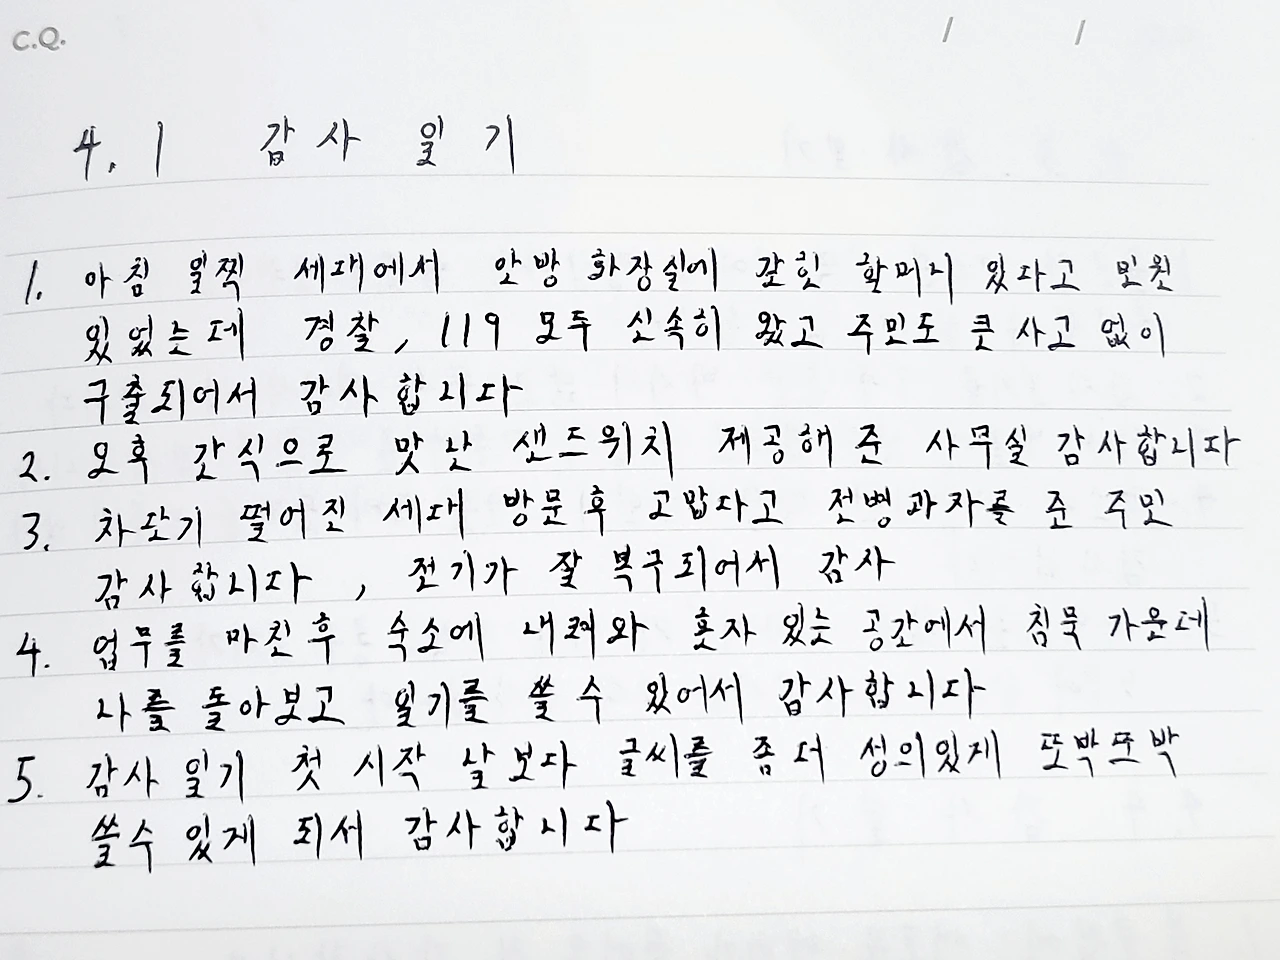 C.Q.
/ /
4. 1 감사 일기
1. 아침 일찍 세대에서 안방 화장실에 갇힌 할머니 있다고 민원
있었는데 경찰, 119 모두 신속히 왔고 주민도 큰 사고 없이
구출되어서 감사합니다
2. 오후 간식으로 맛난 샌드위치 제공해 준 사무실 감사합니다
3. 차단기 떨어진 세대 방문후 고맙다고 전병과자를 준 주민
감사합니다, 전기가 잘 복구되어서 감사
4. 업무를 마친후 숙소에 내려와 혼자 있는 공간에서 침묵 가운데
나를 돌아보고 일기를 쓸 수 있어서 감사합니다
5. 감사 일기 첫 시작 날보다 글씨를 좀더 성의있게 또박또박
쓸수 있게 되서 감사합니다